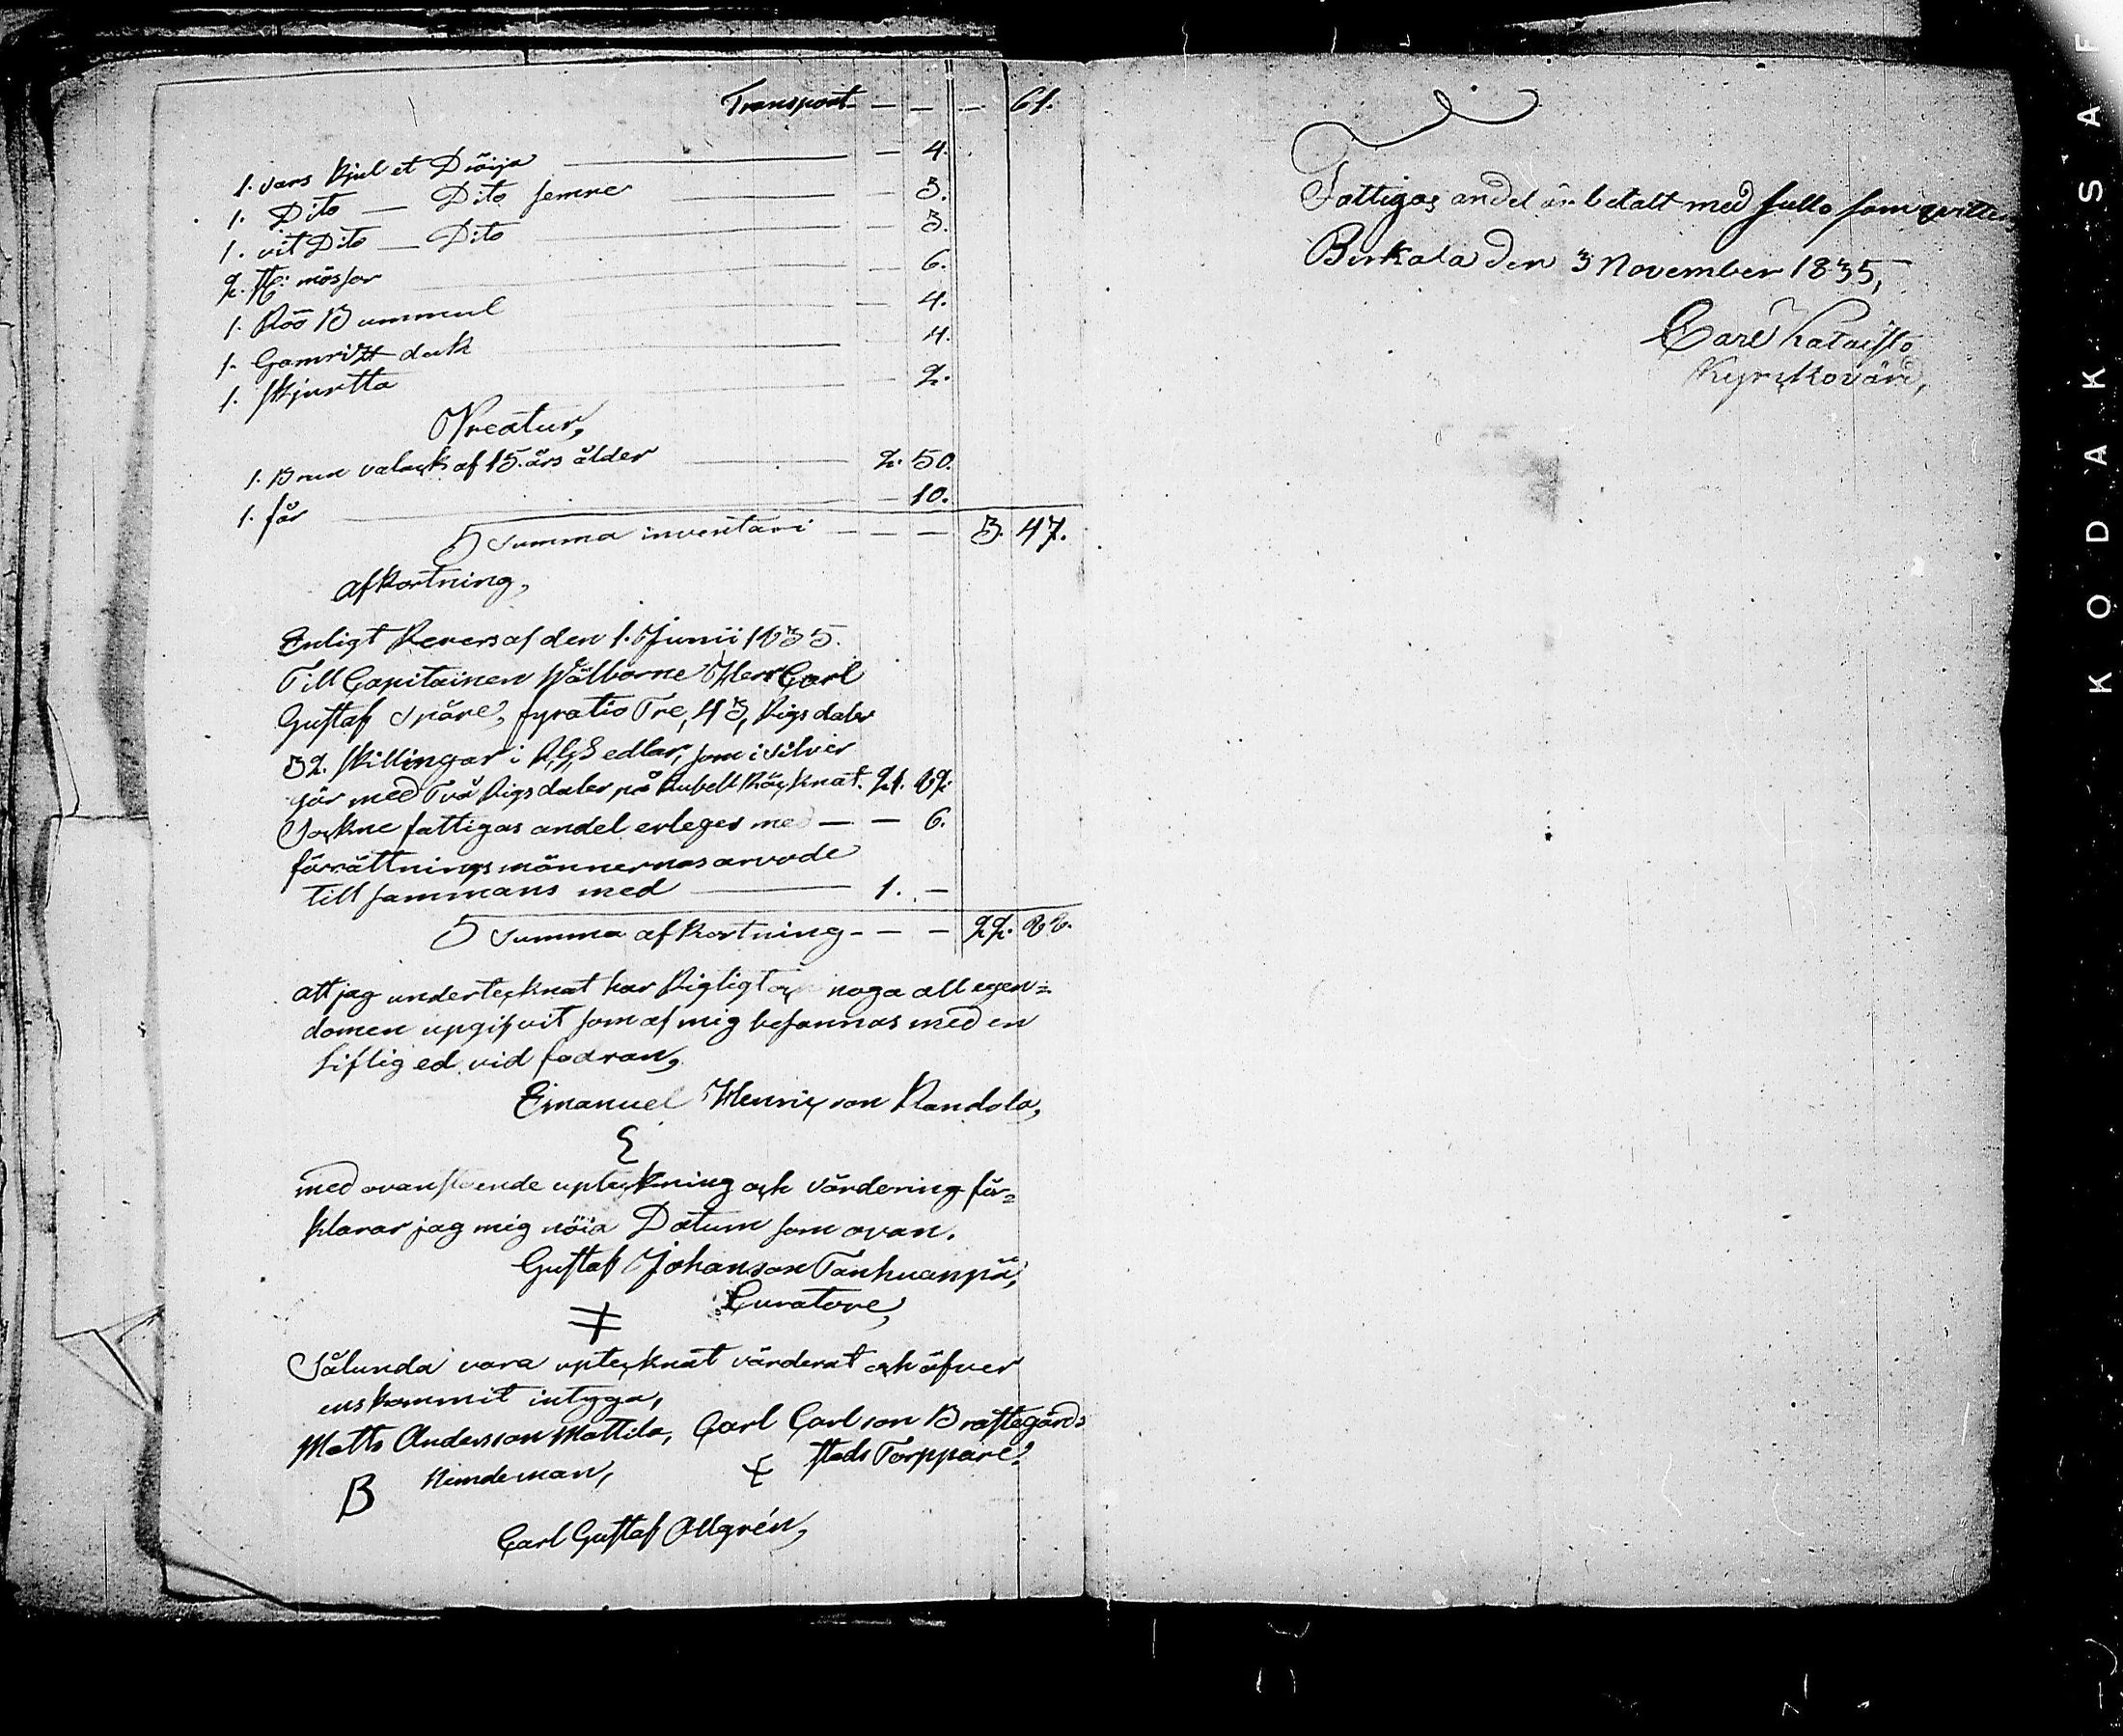 Transport — — — 61.
1. vars kjul et Dröija — 4.
1. Dito — Dito semre — 3.
1. vit Dito — Dito — 3.
2. st: mössor — 6.
1. Röö Bummul — 4.
1. duk — 4.
1. skjurtta — 2.
Kreatur,
1. Brun valack af 15. års ålder — 2. 50.
1. får — 10.
Summa inventari — — — 3. 47.
afkortning,
Enligt Revers af den 1. Junii 1835.
Till Capitainen Wälborne Herr Carl
Gustaf Spåre, fyratio Tre, 43, Rigsdaler
32. skillingar i R,G,Sedlar, som i silver
gör med Två Rigsdaler på Rubell Räcknat. 21. 82.
Sockne fattigas andel erleges med — — 6.
förrättnings männernas arvode
till sammans med — 1. —
Summa afkortning — — — 22. 88.
att jag undertecknat har Rigligt och noga all egen=
domen upgifvit som af mig befannas med en
liflig ed vid fodran,
Emanuel Henricson Randola,
med ovanstående upteckning och värdering för=
klarar jag mig nöia Datum som ovan.
Gustaf Johanson Tanhuanpä,
Curatore,
Sålunda vara uptecknat värderat och öfver
enskommit intyga,
Matts Andersson Mattila, Carl Carlson Brattegårds
Nemdeman, stads Torppare,
B
Carl Gustaf Allgrén,
Fattigas andel är betalt med fullo som qvitte
Birkala den 3 November 1835,
Carl Kataisto
Kyrckovärd,
KODAK SAF